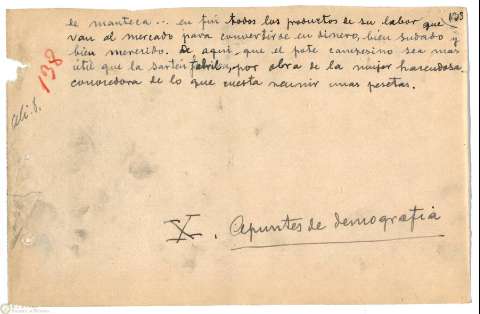 de manteca... en fin todos los productos de su labor que
van al mercado para convertirse en dinero, bien sudado y
bien merecido. De aquí, que el pote campesino sea más
útil que la sartén fabril, por obra de la mujer hacendosa,
conocedora de lo que cuesta reunir unas pesetas.
138
X. Apuntes de demografía